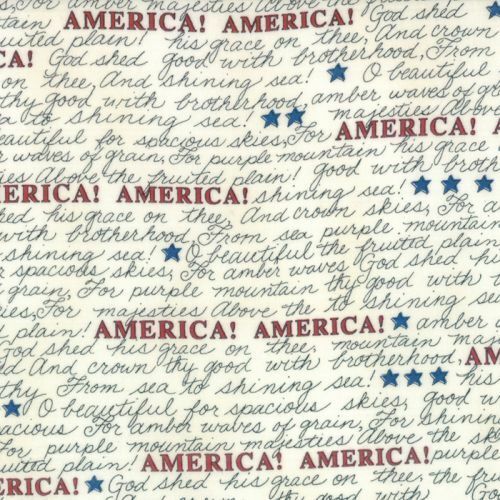 skies, For amber majesties Above the
tain AMERICA! AMERICA! God shed
fruited plain! his grace on thee, And crown
CA! God shed good with brotherhood, From
on thee, And shining sea! O beautiful
thy good with brotherhood, amber waves of
sea to shining sea! majesties Above
beautiful for spacious skies, For AMERICA! A
er waves of grain, For purple mountain his grace on
ties Above the fruited plain! good with broth
ERICA! AMERICA! shining sea!
hed his grace on thee, And crown skies, For a
with brotherhood From sea purple mountain
shining sea! O beautiful the fruited plain
spacious skies, For amber waves God shed h
grain, For purple mountain thy good with
ies, For majesties Above the to shining
plain! AMERICA! AMERICA! amber
God shed his grace on thee, mountain maj
d And crown thy good with brotherhood, AM
thy From sea to shining sea! his
O beautiful for spacious skies, good w
acious For amber waves of grain, For shining
or purple mountain majesties Above the sk
uited plain! AMERICA! AMERICA! purple
ERICA! God shed his grace on thee, mount
on thee, And crown thy good with the